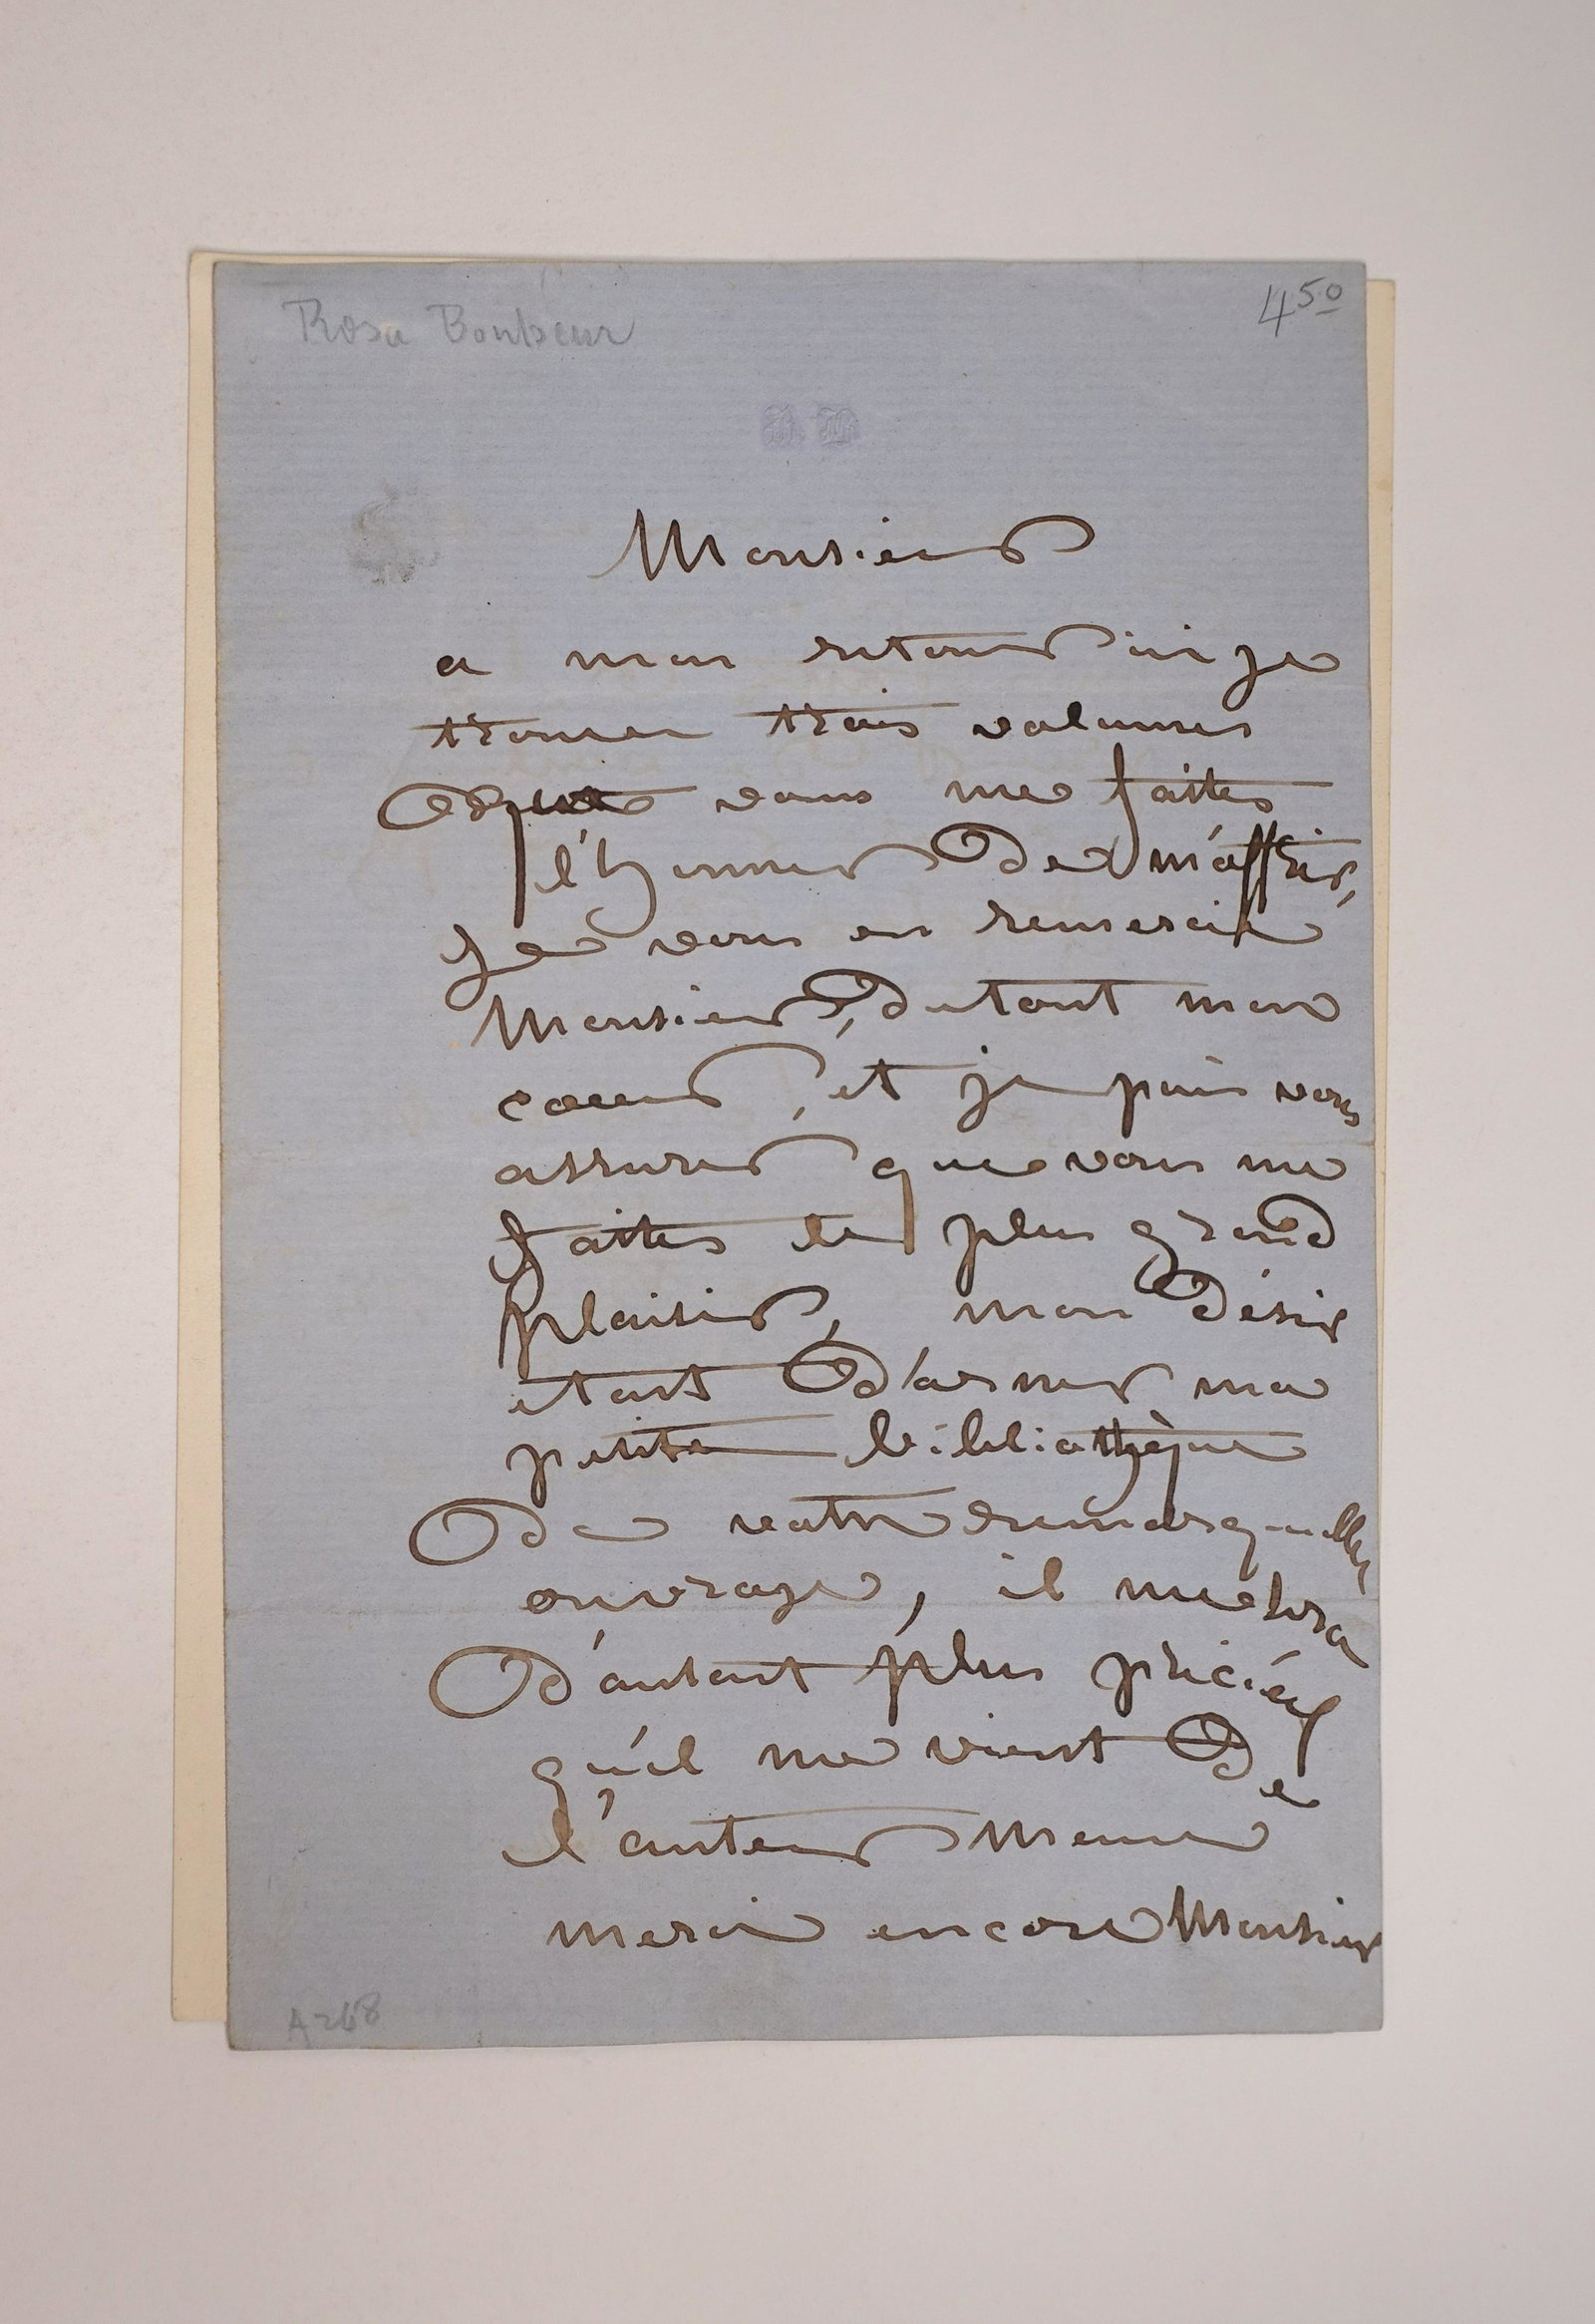 Rosa Bonheur
4 50
Monsieur
a mon retour ici je
trouve trois volumes
que vous me faites
l'honneur de m'offrir,
Je vous en remercie
Monsieur, de tout mon
coeur, et je puis vous
assurer que vous me
faites le plus grand
plaisir, mon désir
etant d'orner ma
petite bibliothèque
de votre remarquable
ouvrage, il me sera
d'autant plus
qu'il me vient de
l'auteur meme
merci encore Monsieur
A268